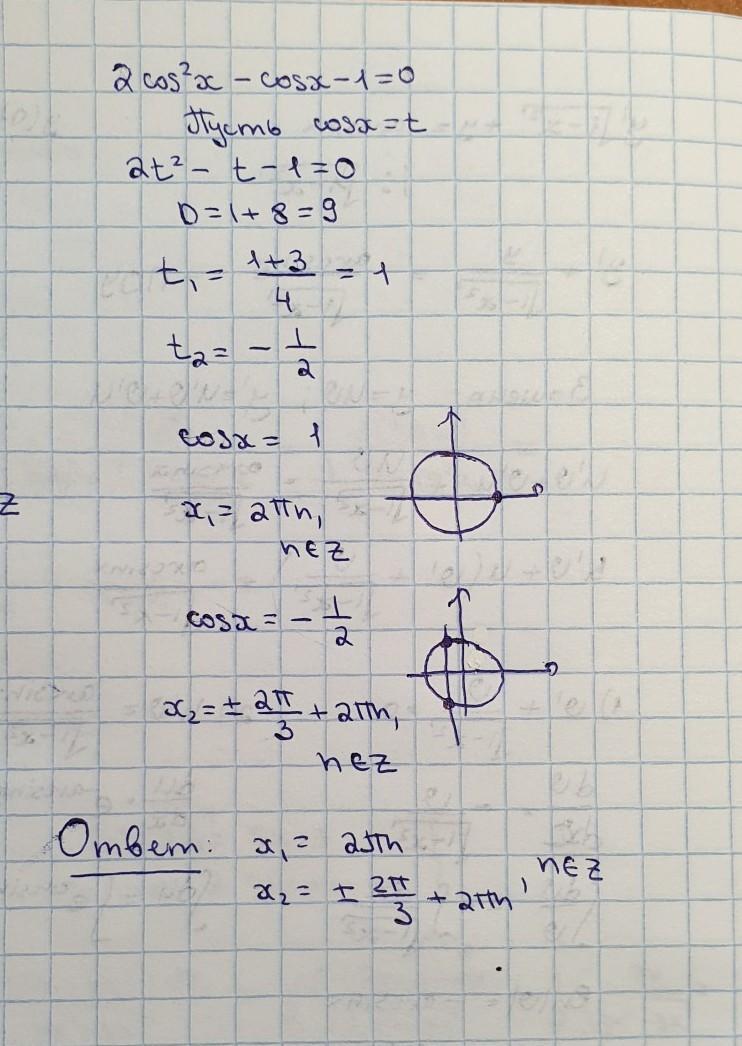 2cos²x - cosx - 1 = 0
Пусть cosx = t
2t² - t - 1 = 0
D = 1 + 8 = 9
t₁ = (1+3)/4 = 1
t₂ = - 1/2
cosx = 1
z
x₁ = 2πn,
n∈Z
cosx = - 1/2
x₂ = ± 2π/3 + 2πn,
n∈Z
Ответ: x₁ = 2πn
x₂ = ± 2π/3 + 2πn, n∈Z